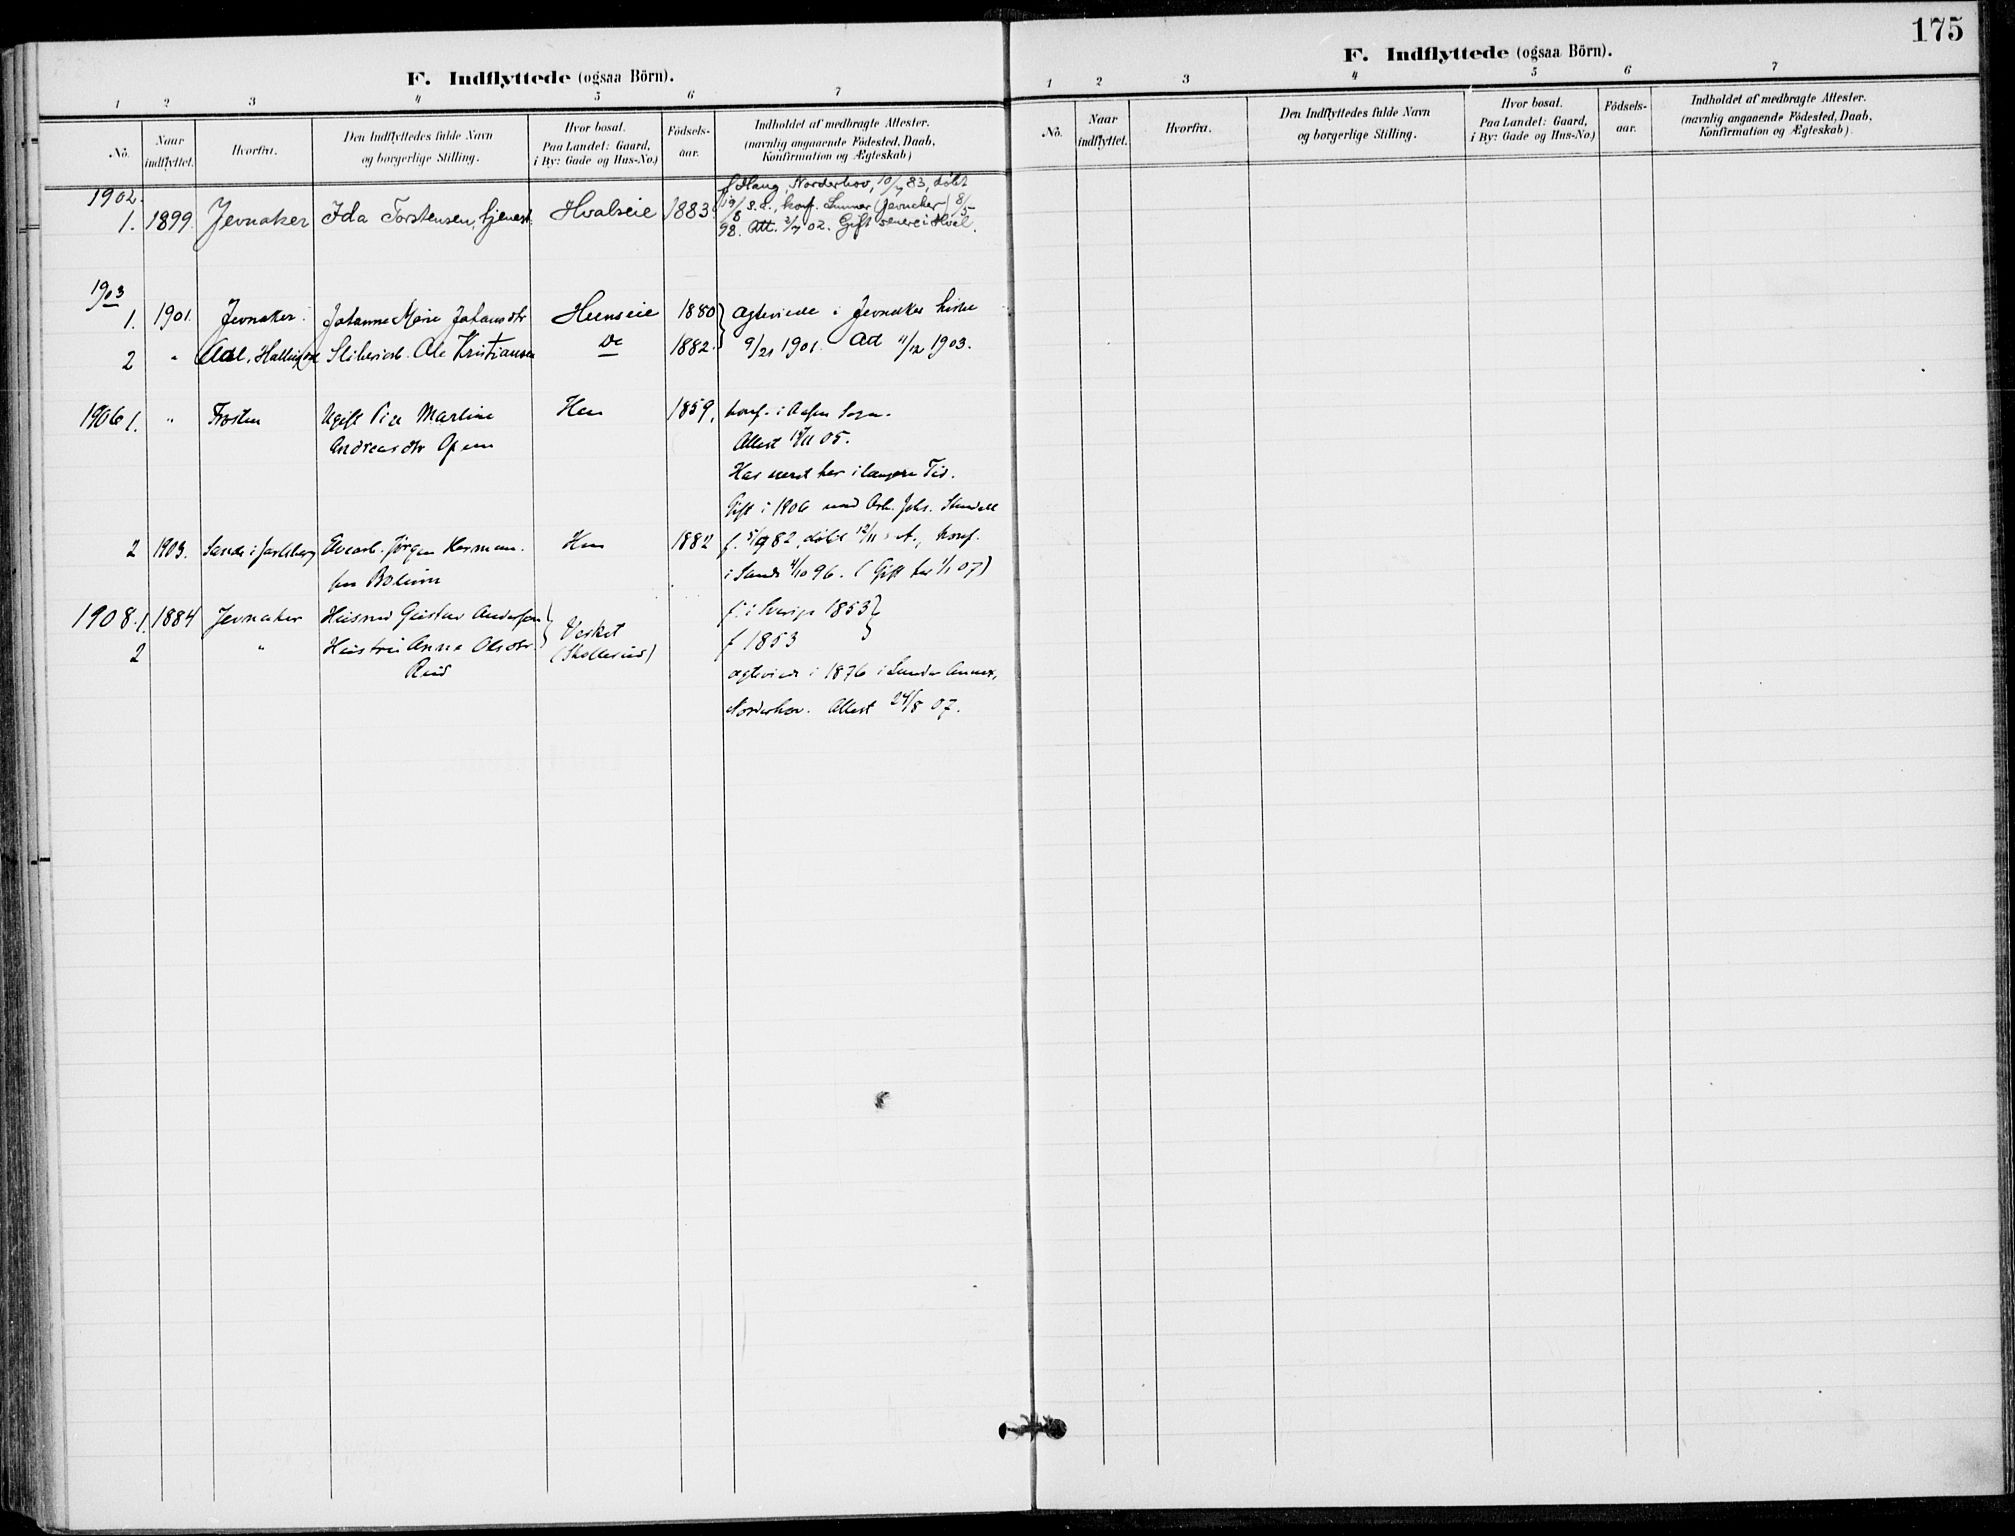 F. Indflyttede (ogsaa Börn).
1 2 3 4 5 6 7
No. Naar indflyttet. Hvorfra. Den Indflyttedes fulde Navn og borgerlige Stilling. Hvor bosat. Paa Landet: Gaard, i By: Gade og Hus-No.) Födsels-aar. Indholdet af medbragte Attester. (navnlig angaaende Födested, Daab, Konfirmation og Ægteskab)
1902.
1. 1899. Jevnaker Ida Torstensen, tjenest. Hvalseie 1883. f Haug, Norderhov, 10/7 83, døbt
19/8 s.å., konf. Lunner (Jevnaker) 8/5
98. Att. 3/7 02. Gift senere i Hval.
1903
1. 1901. Jevnaker. Johanne Marie Johansdtr Heenseie 1880 Ægteviede i Jevnaker kirke
2 " Aal, Hallingdal Sliberiarb. Ole Kristiansen Do 1882. 9/21 1901. Ad 11/12 1903.
1906 1. " Frosten Ugift Martine Hen 1859. konf. i Aasen Sogn.
Andreasdtr Opem Attest 05.
Har været her i længere Tid.
Gift i 1906 med Arb. Johs.
2 1903. Sande i Jarlsberg Jørgen Herman- Hen 1882 f. 5/9 82, døbt 12/11 s. A., konf.
sen i Sande 4/10 96. (Gift her 1/1 07)
1908. 1. 1884 Jevnaker Husmd Gustav Anderssen f. i Sverige 1853
2 " Hustru Anna Olsdtr Verket f 1853
Rud ægteviede i 1876 i Lunder Annex,
Norderhov. Attest 24/8 07.
175
F. Indflyttede (ogsaa Börn).
1 2 3 4 5 6 7
No. Naar indflyttet. Hvorfra. Den Indflyttedes fulde Navn og borgerlige Stilling. Hvor bosat. Paa Landet: Gaard, i By: Gade og Hus-No.) Födsels-aar. Indholdet af medbragte Attester. (navnlig angaaende Födested, Daab, Konfirmation og Ægteskab)